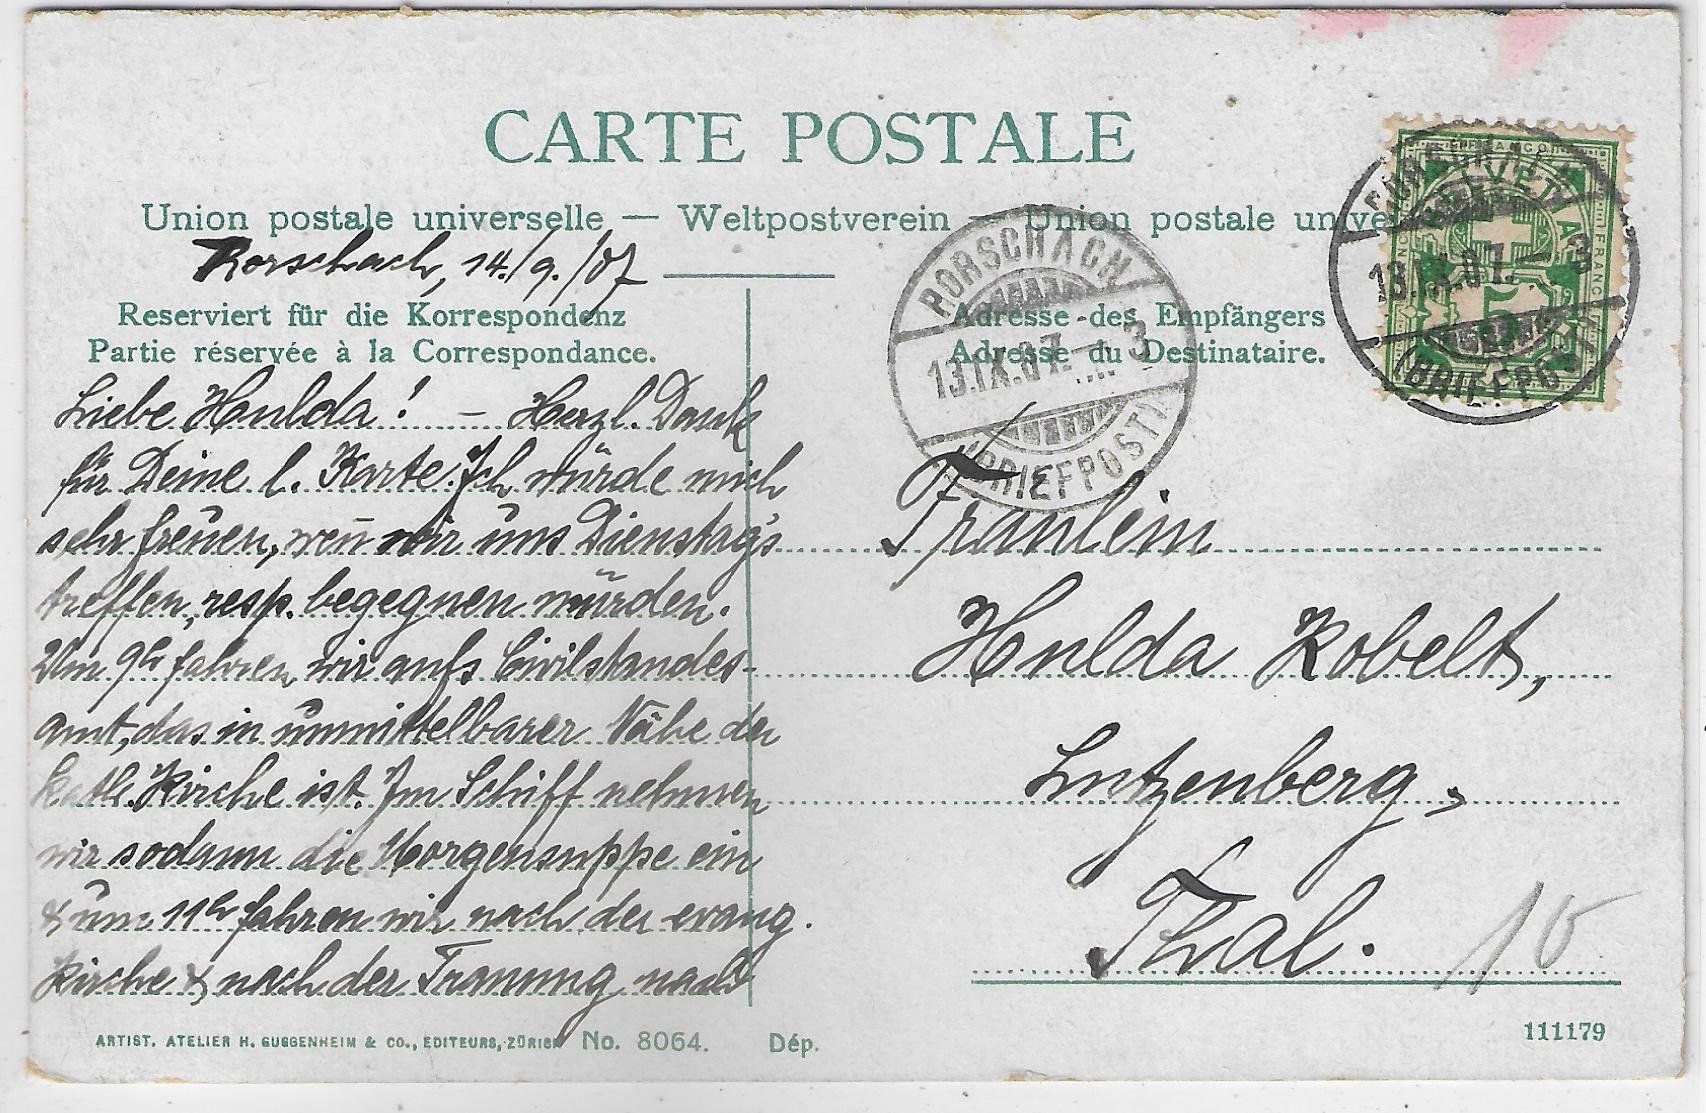 CARTE POSTALE
Union postale universelle — Weltpostverein — Union postale unive
Rorschach, 14./9./07
Reserviert für die Korrespondenz
Partie réservée à la Correspondance.
Liebe Hulda! — Herzl. Dank
für Deine l. Karte. Ich würde mich
sehr freuen, weñ wir uns Dienstag's
treffen, resp. begegnen würden.
Um 9h fahren wir aufs Civilstandes-
amt, das in unmittelbarer Nähe der
kath. Kirche ist. Im Schiff nehmen
wir sodann die Morgensuppe ein
& um 11h fahren wir nach der evang.
Kirche & nach der Trauung nach
Adresse des Empfängers
Adresse du Destinataire.
Fräulein
Hulda Kobelt,
Lutzenberg,
Thal.
10
RORSCHACH
13.IX.07.-3
(BRIEFPOST)
HELVETIA
5
13.IX.07.-3
(BRIEFPO
ARTIST. ATELIER H. GUGGENHEIM & CO., EDITEURS, ZÜRICH No. 8064. Dép.
111179